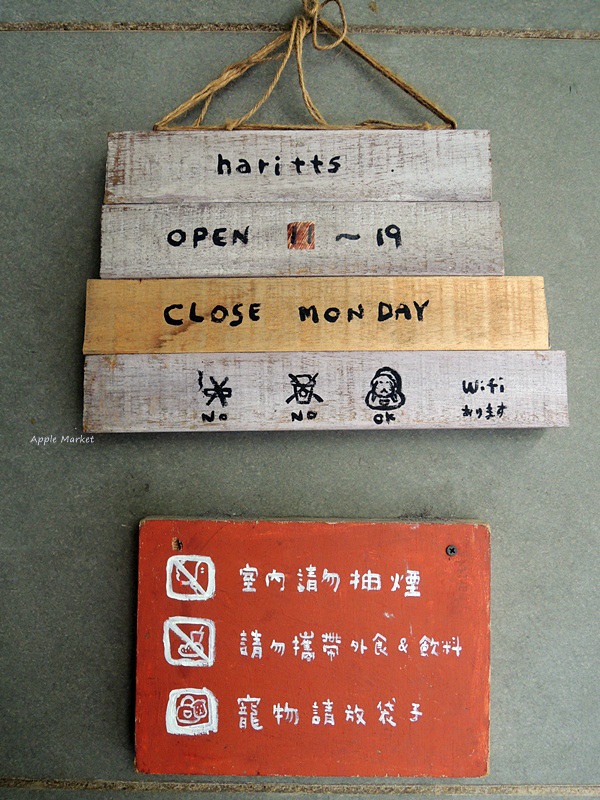 haritts
OPEN 11 ~ 19
CLOSE MONDAY
No No OK Wifi
あります
Apple Market
室內請勿抽煙
請勿攜帶外食 & 飲料
寵物請放袋子